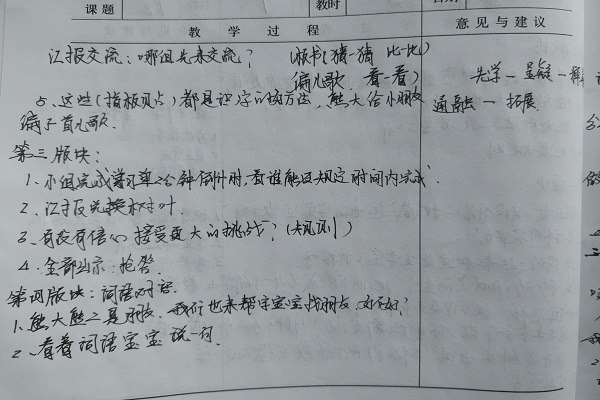 课题
教时
教 学 过 程
意见与建议
汇报交流：哪组先来交流？ (板书：猜一猜 比一比)
编儿歌 看一看)
先学一
5、这些(指板贝占)都是识字的好方法，熊大给小朋友
通融一拓展
编了首儿歌.
第三版块：
1、小组完成学习单2分钟倒计时，看谁能在规定时间内完成
2、汇报兑换树叶.
3、有没有信心接受更大的挑战？(规则)
4、全部出示：抢答.
第四版块：词语对话.
1、熊大熊二是朋友，我们也来帮字宝宝找朋友，好不好？
2、看着词语宝宝说一句.